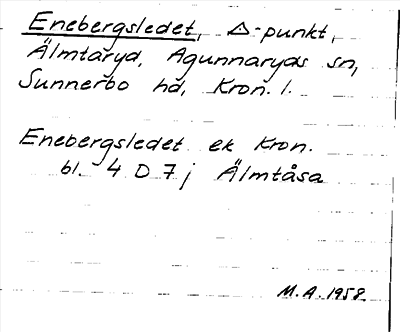 Enebergsledet, △-punkt,
Älmtaryd, Agunnaryds sn,
Sunnerbo hd, Kron. l.
Enebergsledet ek Kron.
bl. 4 D 7 j Älmtåsa
M.A. 1958